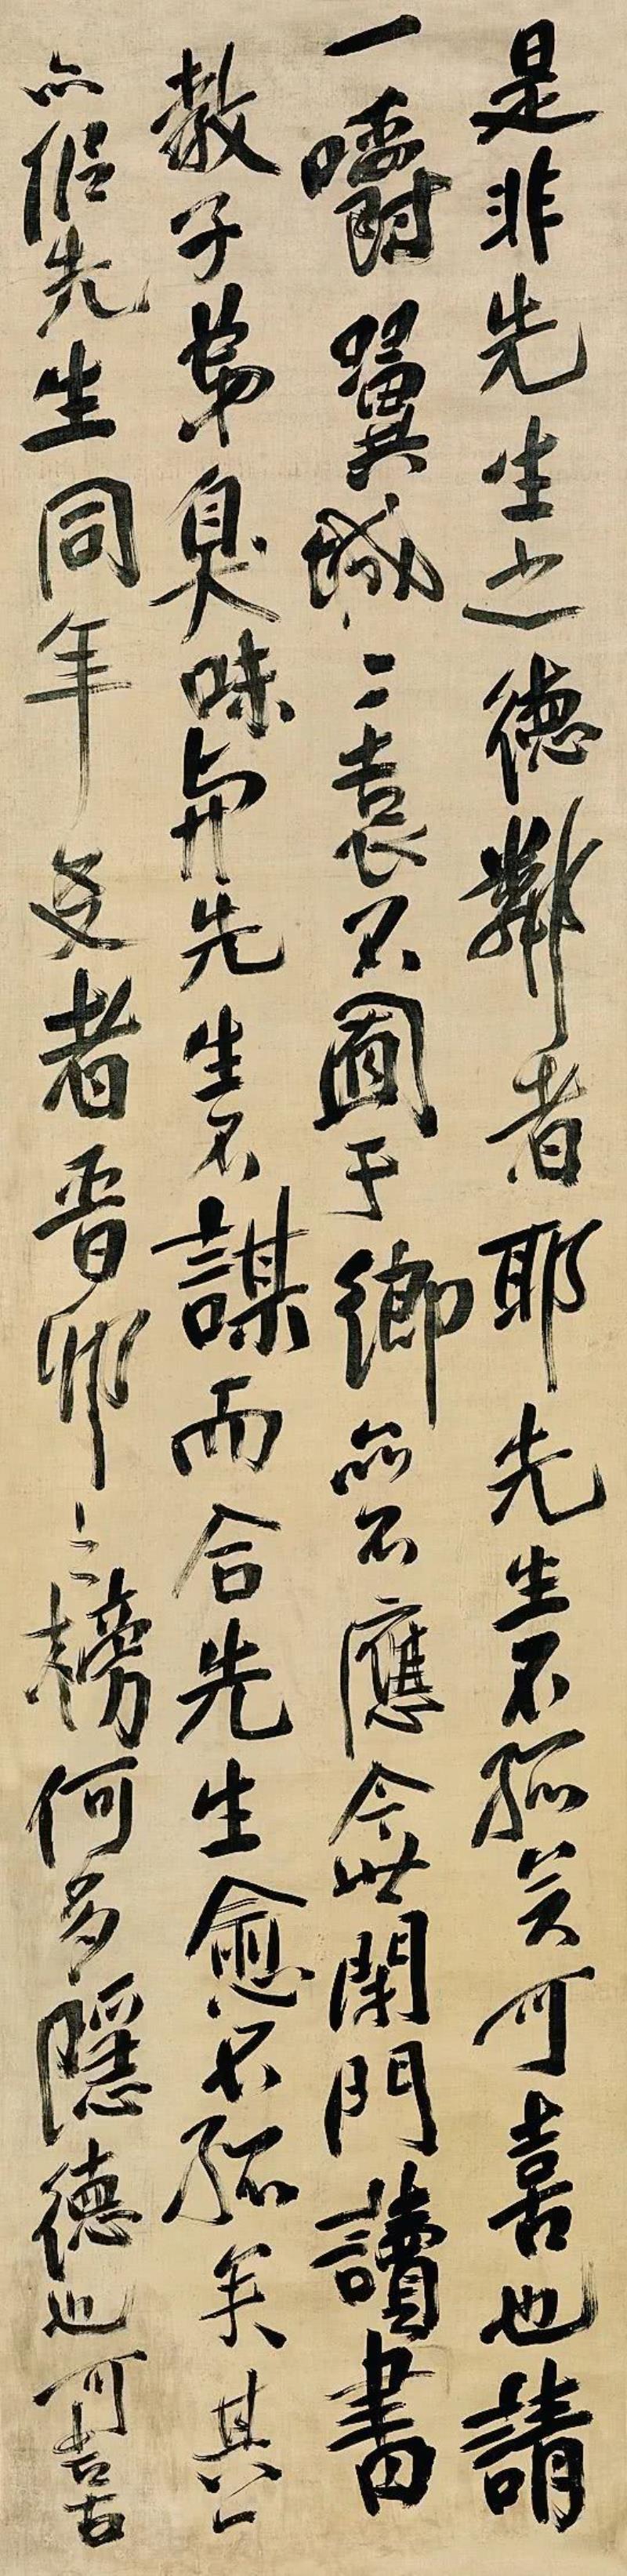 是非先生之德鄰者耶先生不孤矣可喜也請
一嚼翼城二袁不圖于鄉亦不應今世閑門讀書
教子弟臭味與先生不謀而合先生愈不孤矣其一
亦侶先生同年友者晉卯之榜何多隱德也可喜